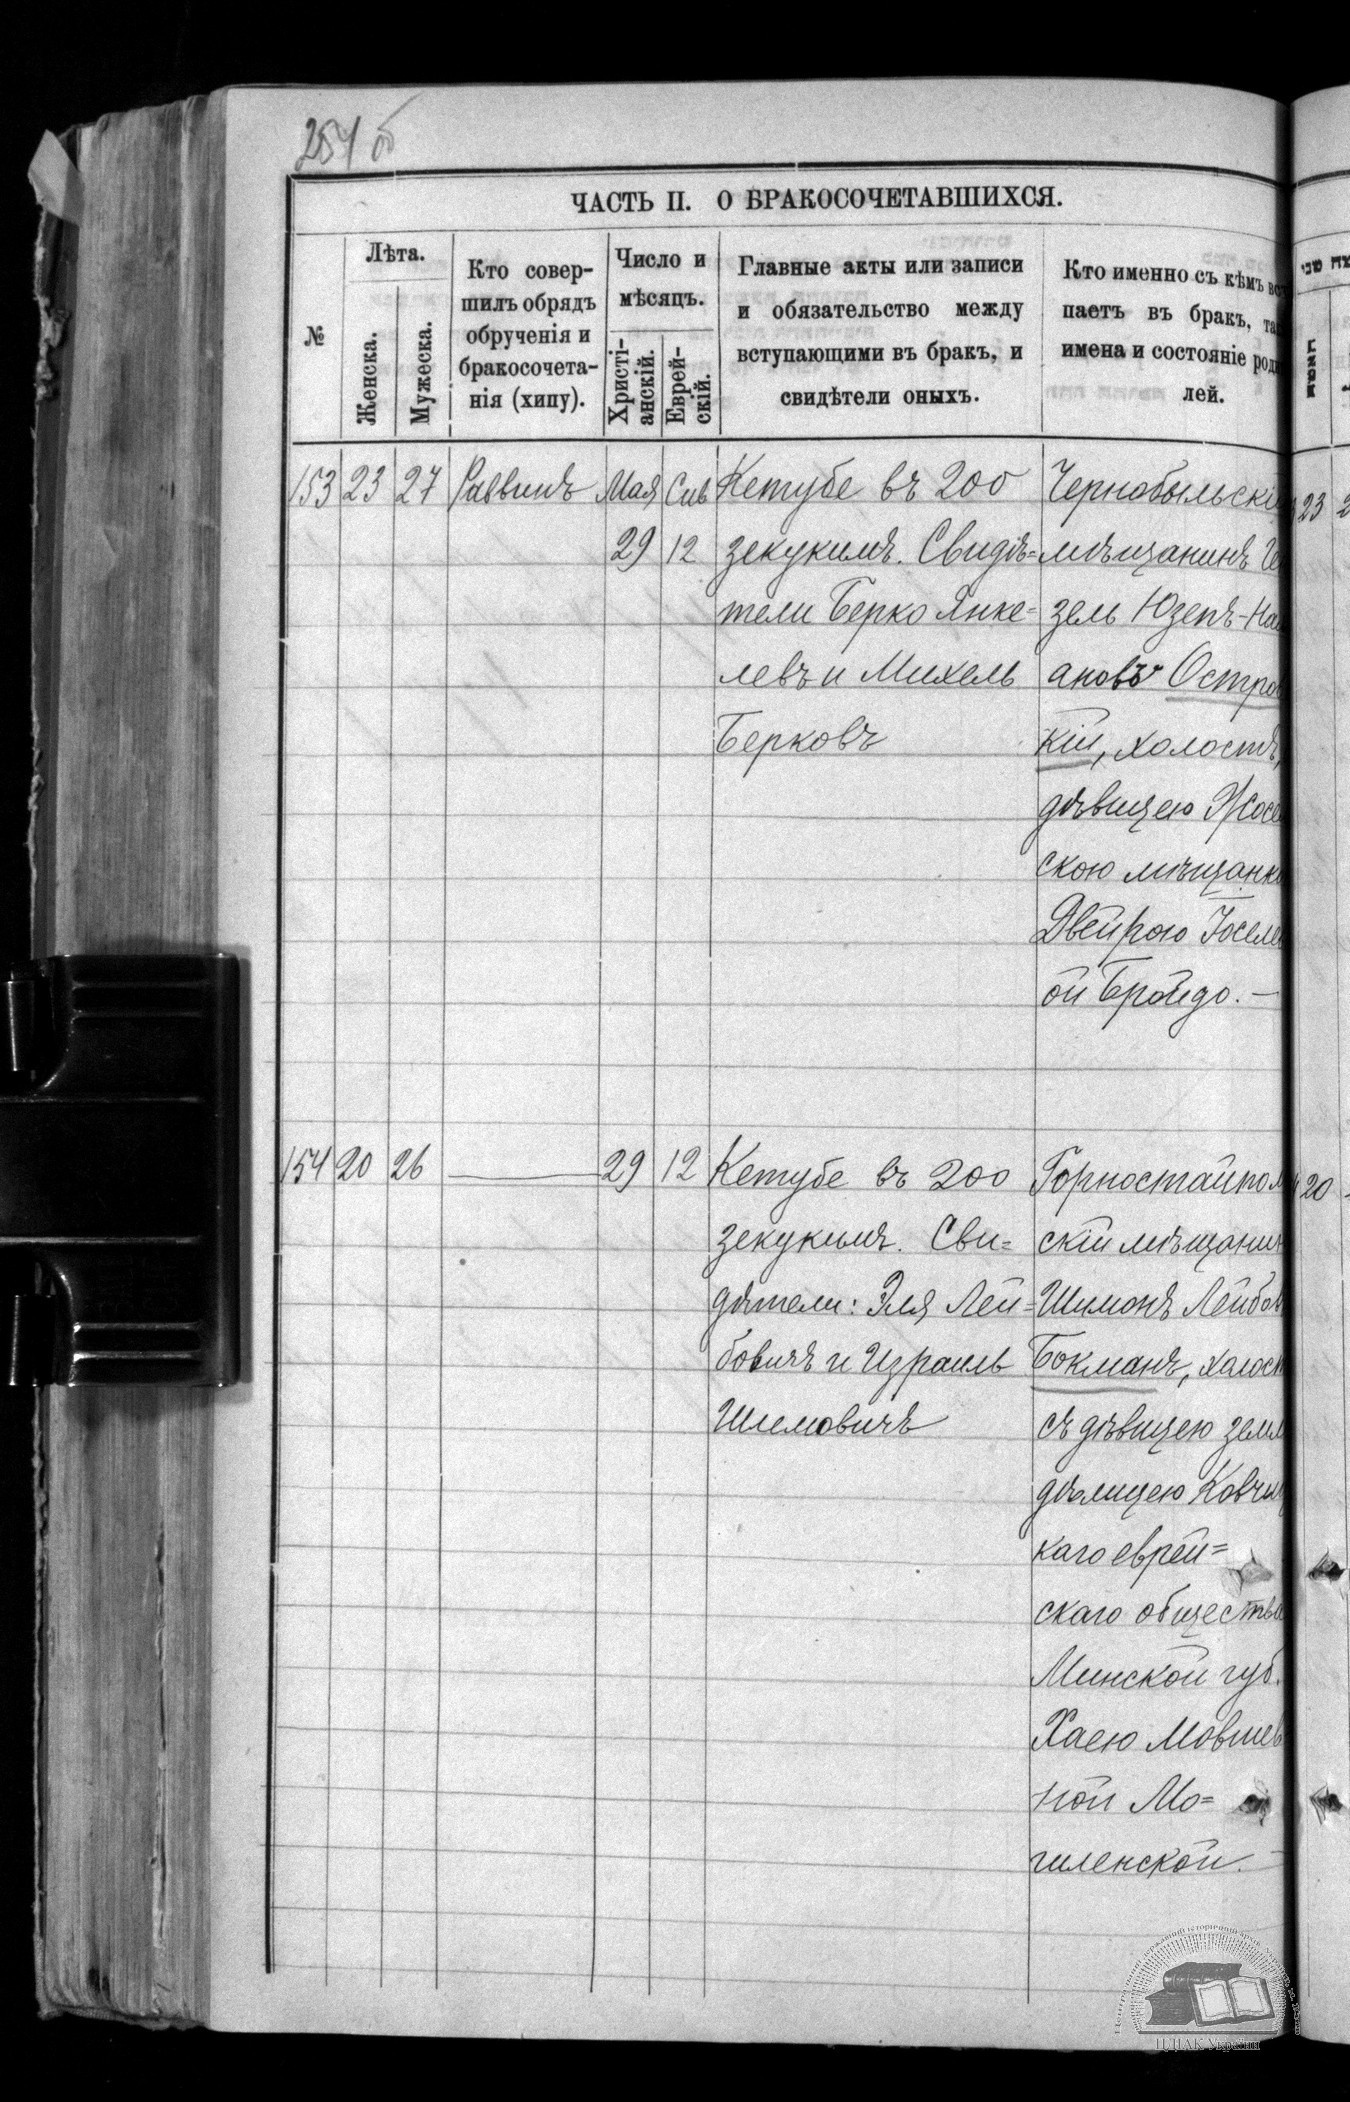 254 об
ЧАСТЬ II. О БРАКОСОЧЕТАВШИХСЯ.
№
Лѣта.
Женска.
Мужеска.
Кто совер-
шилъ обрядъ
обрученія и
бракосочета-
нія (хипу).
Число и
мѣсяцъ.
Христі-
анскій.
Еврей-
скій.
Главные акты или записи
и обязательство между
вступающими въ бракъ, и
свидѣтели оныхъ.
Кто именно съ кѣмъ вст
паетъ въ бракъ, та
имена и состояніе роди
лей.
153 23 27 Раввинъ Мая 29 Сив 12
Кетубе въ 200
зекукимъ. Свидѣ=
тели Берко Янке=
левъ и Михель
Берковъ
Чернобыльскі
мѣщанинъ Ге
зель Юзепъ-На
ановъ Остров
кій, холостъ,
дѣвицею
скою мѣщанк
Двейрою Іоселе
ой Бройдо. —
154 20 26 — 29 12
Кетубе въ 200
зекукимъ. Сви=
дѣтели: Эля Лей=
бовичъ и Израиль
Шлемовичъ
Горностайпол
скій мѣщанин
Шимонъ Лейбов
Бокманъ, холост
съ дѣвицею земл
дѣлицею Ковчиц
каго еврей=
скаго общества
Минской губ.
Хаею Мовшев
ной Мо=
гиленской. —
23
20
ЦДІАК України